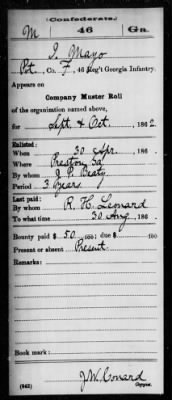 (Confederate.)
M 46 Ga.
I. Mayo
Pvt., Co. F, 46 Reg't Georgia Infantry.
Appears on
Company Muster Roll
of the organization named above,
for Sept & Oct, 1862
Enlisted:
When 30 Apr, 186 .
Where Preston Ga
By whom J. P. Beaty
Period 3 years
Last paid:
By whom R. H. Leonard
To what time 30 Aug, 186 .
Bounty paid $ 50 100; due $ 100
Present or absent Present
Remarks:
Book mark:
J. W. Conard
(642) Copyist.